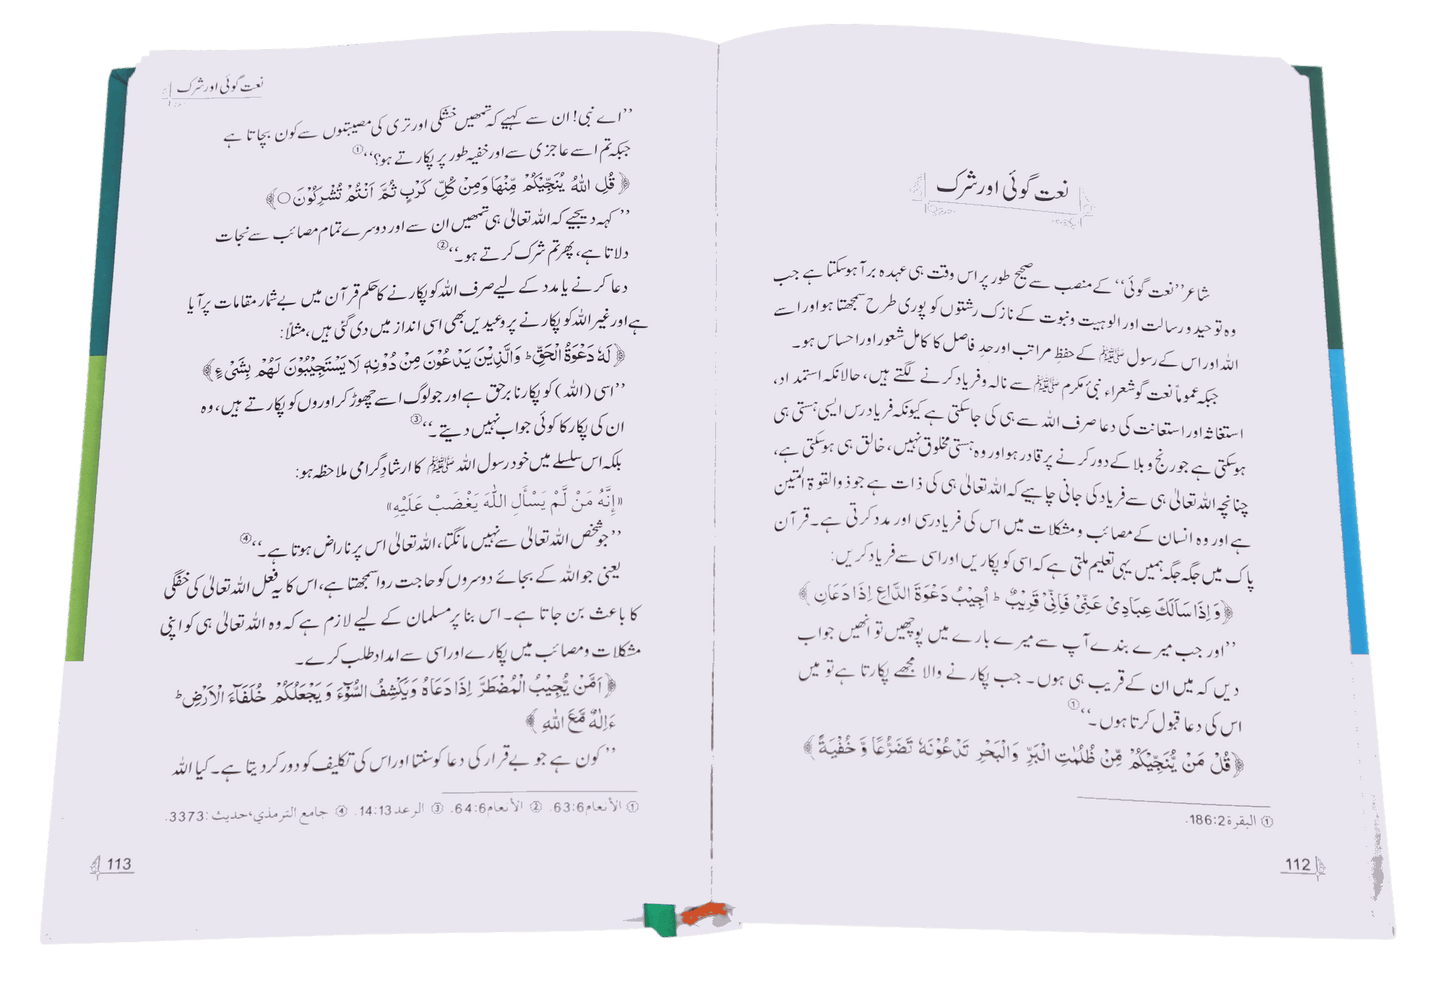 نعت گوئی اور شرک
شاعر ’’نعت گوئی‘‘ کے منصب سے صحیح طور پر اس وقت ہی عہدہ برآ ہوسکتا ہے جب
وہ توحید و رسالت اور الوہیت و نبوت کے نازک رشتوں کو پوری طرح سمجھتا ہو اور اسے
اللہ اور اس کے رسول ﷺ کے حفظ مراتب اور حدِ فاصل کا کامل شعور اور احساس ہو۔
جبکہ عموماً نعت گو شعراء، نبیٔ مکرم ﷺ سے نالہ و فریاد کرنے لگتے ہیں، حالانکہ استمداد،
استغاثہ اور استعانت کی دعا صرف اللہ سے ہی کی جاسکتی ہے کیونکہ فریاد رس ایسی ہستی ہی
ہوسکتی ہے جو رنج و بلا کے دور کرنے پر قادر ہو اور وہ ہستی مخلوق نہیں، خالق ہی ہوسکتی ہے،
چنانچہ اللہ تعالیٰ ہی سے فریاد کی جانی چاہیے کہ اللہ تعالیٰ ہی کی ذات ہے جو ذوالقوۃ المتین
ہے اور وہ انسان کے مصائب و مشکلات میں اس کی فریاد رسی اور مدد کرتی ہے۔ قرآن
پاک میں جگہ جگہ ہمیں یہی تعلیم ملتی ہے کہ اسی کو پکاریں اور اسی سے فریاد کریں:
﴿وَاِذَا سَاَلَكَ عِبَادِیْ عَنِّیْ فَاِنِّیْ قَرِیْبٌ ؕ اُجِیْبُ دَعْوَةَ الدَّاعِ اِذَا دَعَانِ﴾
’’اور جب میرے بندے آپ سے میرے بارے میں پوچھیں تو انھیں جواب
دیں کہ میں ان کے قریب ہی ہوں۔ جب پکارنے والا مجھے پکارتا ہے تو میں
اس کی دعا قبول کرتا ہوں۔‘‘①
﴿قُلْ مَنْ یُّنَجِّیْكُمْ مِّنْ ظُلُمٰتِ الْبَرِّ وَالْبَحْرِ تَدْعُوْنَهٗ تَضَرُّعًا وَّ خُفْیَةً﴾
① البقرة 186:2.
112
نعت گوئی اور شرک
’’اے نبی! ان سے کہیے کہ تمھیں خشکی اور تری کی مصیبتوں سے کون بچاتا ہے
جبکہ تم اسے عاجزی سے اور خفیہ طور پر پکارتے ہو؟‘‘①
﴿قُلِ اللّٰهُ یُنَجِّیْكُمْ مِّنْهَا وَمِنْ كُلِّ كَرْبٍ ثُمَّ اَنْتُمْ تُشْرِكُوْنَ○﴾
’’کہہ دیجیے کہ اللہ تعالیٰ ہی تمھیں ان سے اور دوسرے تمام مصائب سے نجات
دلاتا ہے، پھر تم شرک کرتے ہو۔‘‘②
دعا کرنے یا مدد کے لیے صرف اللہ کو پکارنے کا حکم قرآن میں بے شمار مقامات پر آیا
ہے اور غیر اللہ کو پکارنے پر وعیدیں بھی اسی انداز میں دی گئی ہیں، مثلاً:
﴿لَهٗ دَعْوَةُ الْحَقِّ ؕ وَالَّذِیْنَ یَدْعُوْنَ مِنْ دُوْنِهٖ لَا یَسْتَجِیْبُوْنَ لَهُمْ بِشَیْءٍ﴾
’’اسی (اللہ) کو پکارنا برحق ہے اور جو لوگ اسے چھوڑ کر اوروں کو پکارتے ہیں، وہ
ان کی پکار کا کوئی جواب نہیں دیتے۔‘‘③
بلکہ اس سلسلے میں خود رسول اللہ ﷺ کا ارشادِ گرامی ملاحظہ ہو:
«إِنَّهُ مَنْ لَّمْ يَسْأَلِ اللّٰهَ يَغْضَبْ عَلَيْهِ»
’’جو شخص اللہ تعالیٰ سے نہیں مانگتا، اللہ تعالیٰ اس پر ناراض ہوتا ہے۔‘‘④
یعنی جو اللہ کے بجائے دوسروں کو حاجت روا سمجھتا ہے، اس کا یہ فعل اللہ تعالیٰ کی خفگی
کا باعث بن جاتا ہے۔ اس بنا پر مسلمان کے لیے لازم ہے کہ وہ اللہ تعالیٰ ہی کو اپنی
مشکلات و مصائب میں پکارے اور اسی سے امداد طلب کرے۔
﴿اَمَّنْ یُّجِیْبُ الْمُضْطَرَّ اِذَا دَعَاهُ وَیَكْشِفُ السُّوْٓءَ وَیَجْعَلُكُمْ خُلَفَآءَ الْاَرْضِ ؕ
ءَاِلٰهٌ مَّعَ اللّٰهِ﴾
’’کون ہے جو بے قرار کی دعا کو سنتا اور اس کی تکلیف کو دور کر دیتا ہے۔ کیا اللہ
① الأنعام 63:6. ② الأنعام 64:6. ③ الرعد 14:13. ④ جامع الترمذي، حديث: 3373.
113